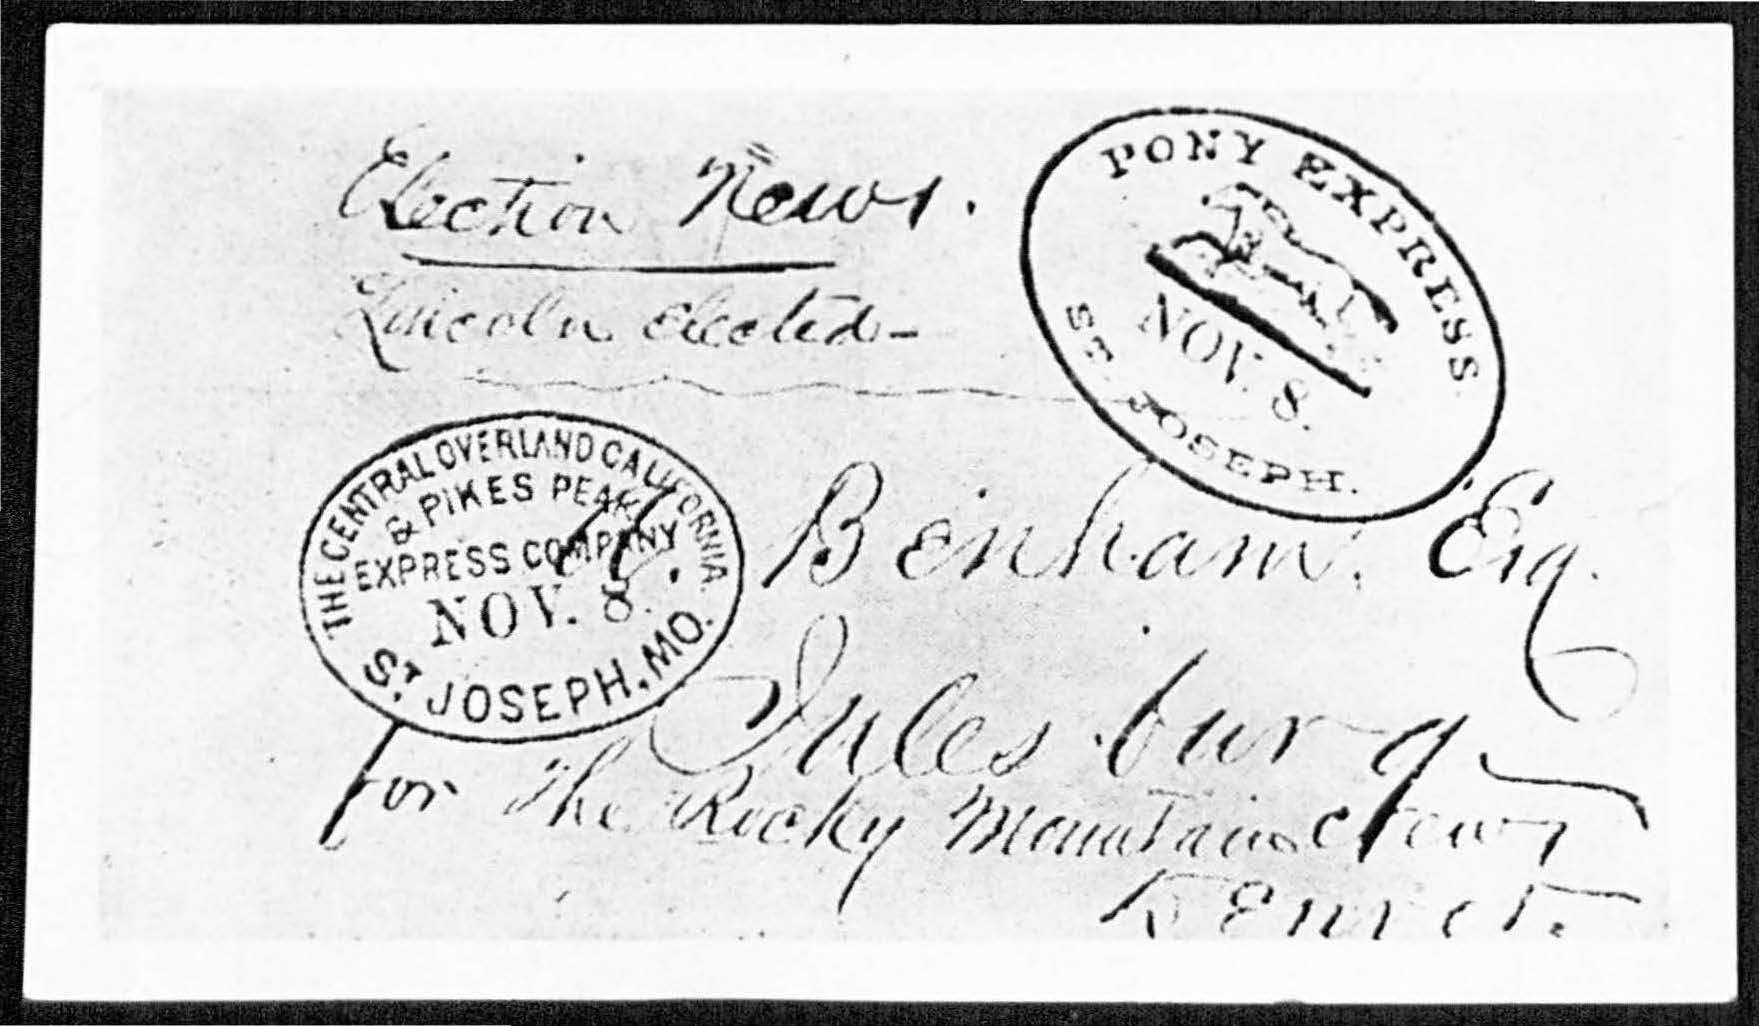 Election News.
Lincoln elected -
PONY EXPRESS
NOV. 8.
ST. JOSEPH.
THE CENTRAL OVERLAND CALIFORNIA.
& PIKES PEAK
EXPRESS COMPANY
NOV. 8.
ST. JOSEPH, MO.
Benham, Esq.
Julesburg
for The Rocky Mountain News
Denver.